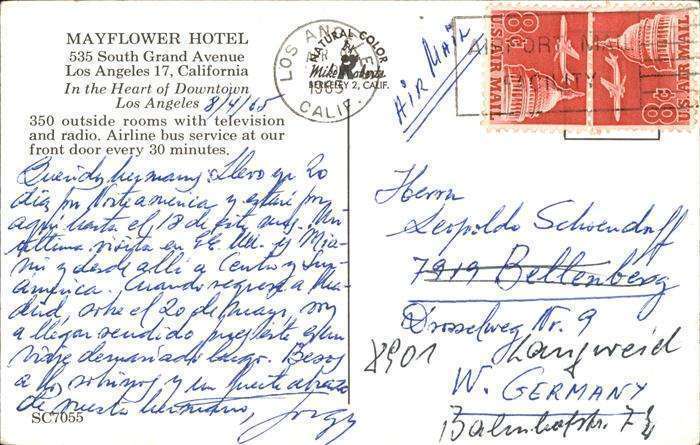 MAYFLOWER HOTEL
535 South Grand Avenue
Los Angeles 17, California
In the Heart of Downtown
Los Angeles 8/4/65
350 outside rooms with television
and radio. Airline bus service at our
front door every 30 minutes.
Querido hermano: Llevo ya 20
días por Norteamérica y estaré por
aquí hasta el 18 de este mes. Mi
última visita en EE. UU. es Mia-
mi y desde allí a Centro y Sur-
américa. Cuando regrese a Ma-
drid, sobre el 20 de Mayo, voy
a llegar rendido pues este es un
viaje demasiado largo. Besos
a los sobrinos y un fuerte abrazo
de vuestro hermano, Jorge
SC7055
LOS ANGELES
CALIF.
1965
NATURAL COLOR
Mike Roberts
BERKELEY 2, CALIF.
AIR MAIL
AIRPORT MAIL
FACILITY
8c
US AIR MAIL
8c
US AIR MAIL
Herrn
Leopoldo Schoendorff
7919 Beltenberg
Drosselweg Nr. 9
8901 Langweid
W. GERMANY
Bahnhofstr.